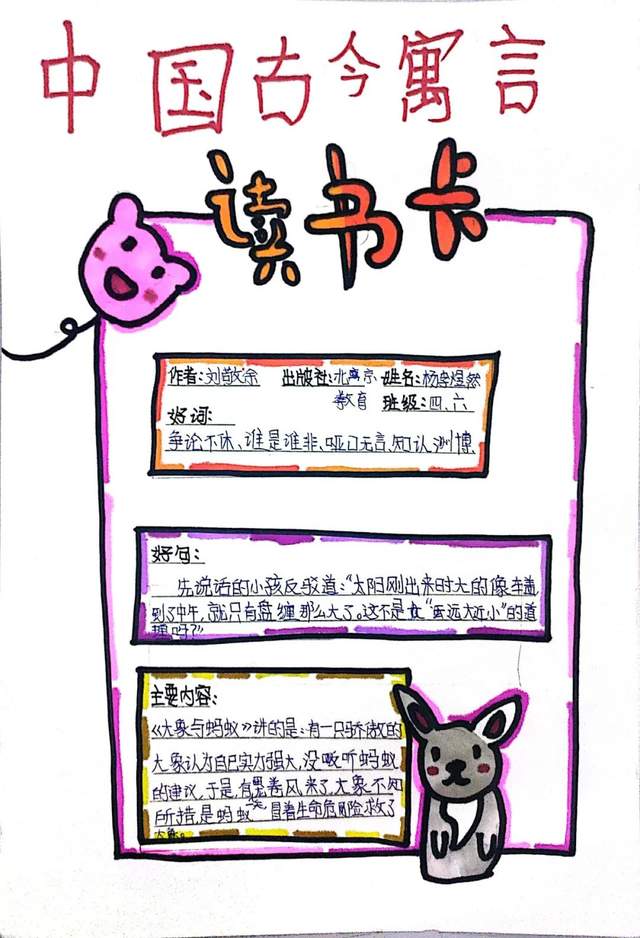 中国古今寓言
读书卡
作者:刘敬余 出版社:北京 姓名:杨
教育 班级:四、六
好词:
争论不休、谁是谁非、哑口无言、知认渊博
好句:
先说话的小孩反驳道:“太阳刚出来时大的像车盖,
到了中午,就只有盘缠那么大了。这不是 “远大近小”的道
理吗?”
主要内容:
《大象与蚂蚁》讲的是:有一只骄傲的
大象认为自己实力强大,没 听蚂蚁
的建议,于是,有 卷风来了,大象不知
所措,是蚂蚁 冒着生命危险救了
大象。